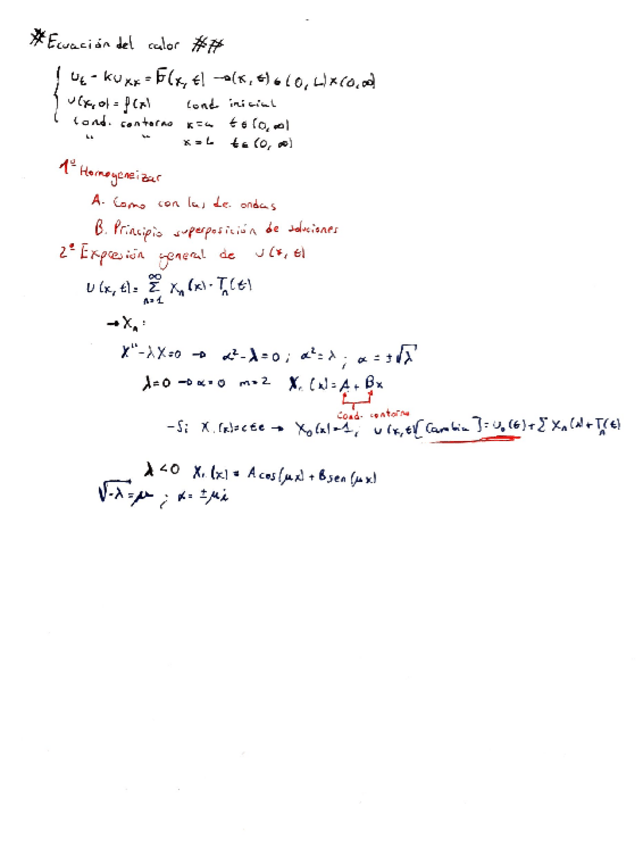 # Ecuación del calor ##
Ut - KUxx = F(x,t) → (x,t) ∈ (0,L) x (0,∞)
U(x,0) = f(x) Cond. inicial
Cond. contorno x=0 t ∈ (0,∞)
" " x=L t ∈ (0,∞)
1º Homogeneizar
A. Como con las de ondas
B. Principio superposición de soluciones
2º Expresión general de U(x,t)
U(x,t) = ∞ Σ n=1 Xn(x) · Tn(t)
→ Xn:
X'' - λX = 0 → α² - λ = 0 ; α² = λ ; α = ±√λ
λ = 0 → α = 0 m = 2 X (x) = A + Bx
Cond. contorno
- Si X (x) = cte → X0(x) = 1, U(x,t) [Cambia] = U0(t) + Σ Xn(x) + Tn(t)
λ < 0 X (x) = A cos(μx) + B sen(μx)
√-λ = μ ; α = ± μi